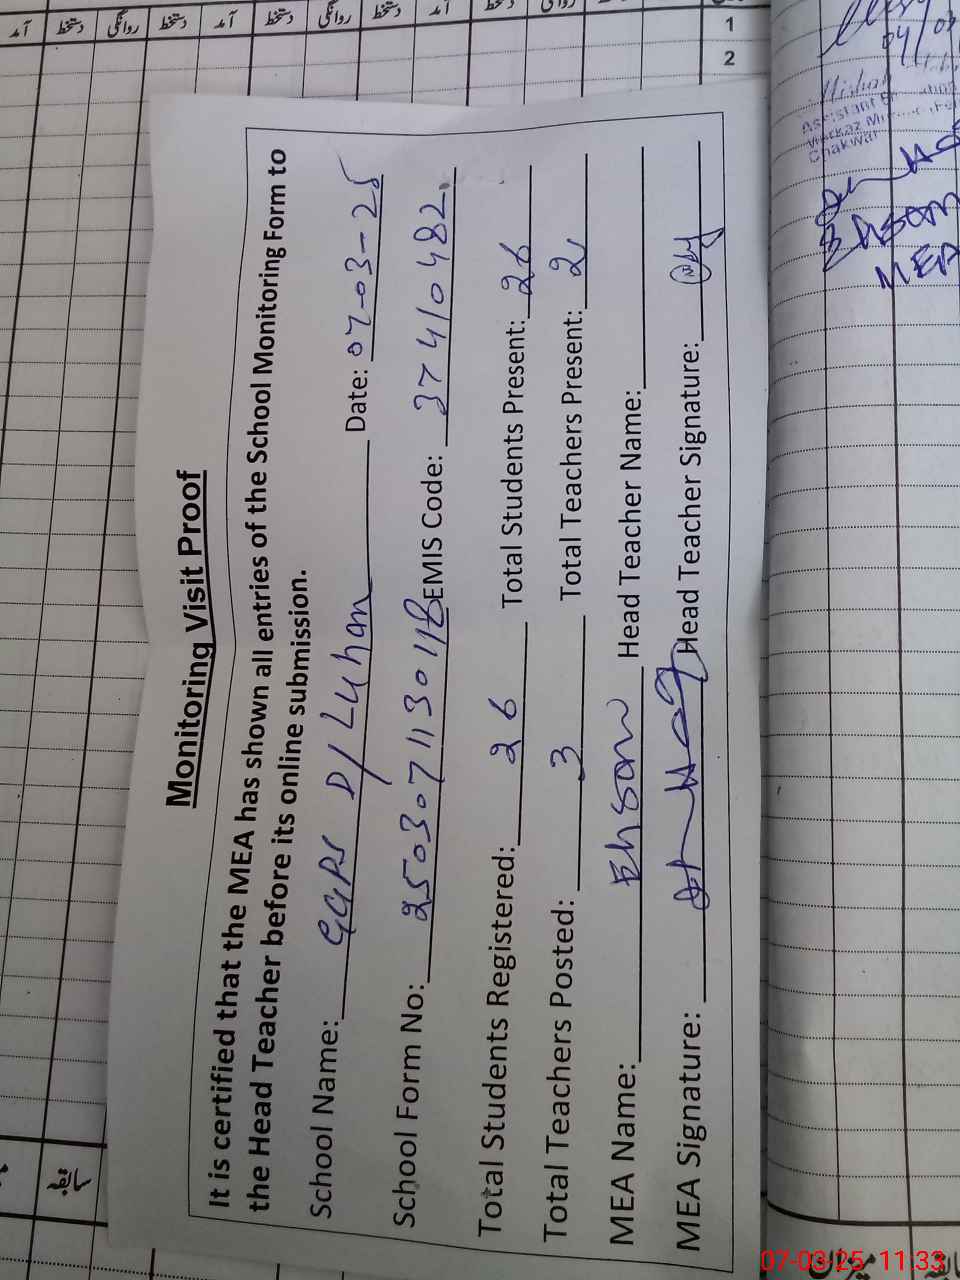 آمد دستخط روانگی دستخط آمد دستخط روانگی دستخط آمد دستخط
1
2
Monitoring Visit Proof
It is certified that the MEA has shown all entries of the School Monitoring Form to
the Head Teacher before its online submission.
School Name: GGPS D/Luham Date: 07-03-25
School Form No: 250307113011B EMIS Code: 37410482
Total Students Registered: 26 Total Students Present: 26
Total Teachers Posted: 3 Total Teachers Present: 2
MEA Name: Ehsan Head Teacher Name:
MEA Signature: Head Teacher Signature:
04/03
Assistant
Markaz
Chakwal
Ehsan
MEA
سابقہ
07-03-25 11:33